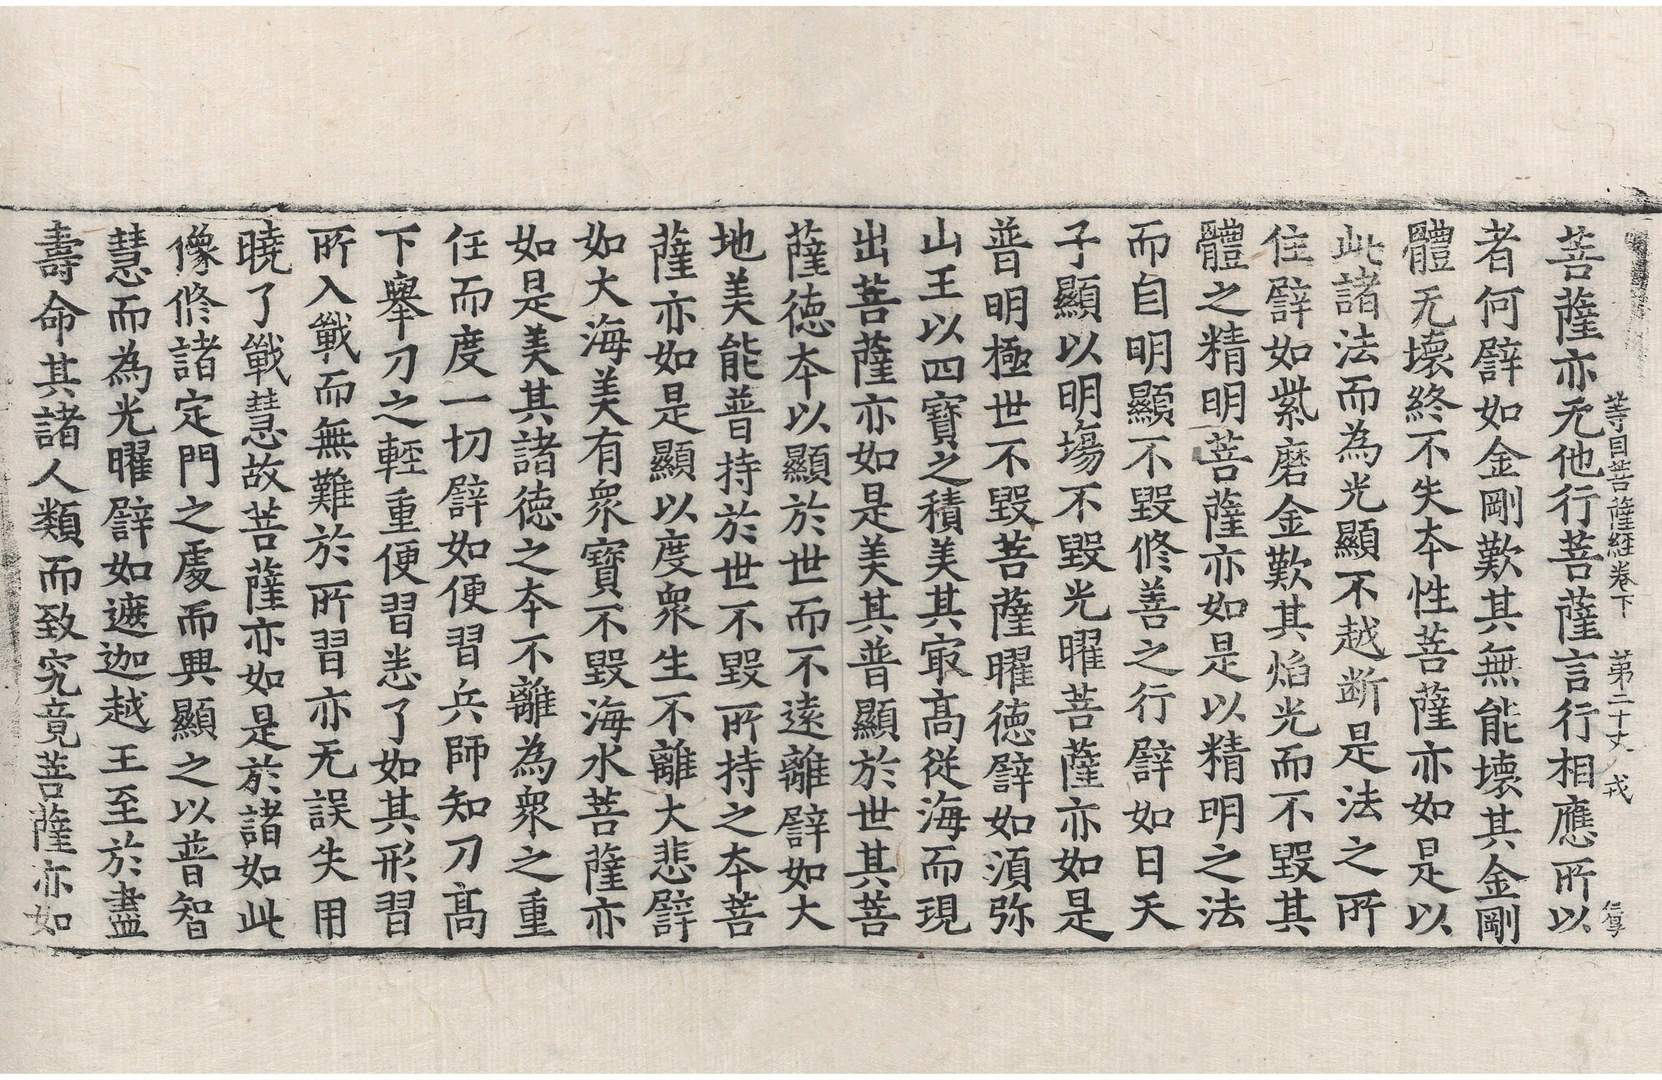 等目菩薩經卷下　第二十丈　戎
菩薩亦无他行菩薩言行相應所以
者何譬如金剛歎其無能壞其金剛
體无壞終不失夲性菩薩亦如是以
此諸法而為光顯不越断是法之所
住譬如紫磨金歎其焰光而不毀其
體之精明菩薩亦如是以精明之法
而自明顯不毀修善之行譬如日天
子顯以明塲不毀光曜菩薩亦如是
普明極世不毀菩薩曜徳譬如湏弥
山王以四寶之積美其㝡髙從海而現
出菩薩亦如是美其普顯於世其菩
薩徳夲以顯於世而不遠離譬如大
地美能普持於世不毀所持之夲菩
薩亦如是顯以度衆生不離大悲譬
如大海美有衆寶不毀海水菩薩亦
如是美其諸徳之夲不離為衆之重
任而度一切譬如便習兵師知刀髙
下舉刀之輕重便習悉了如其形習
所入戰而無難於所習亦无誤失用
曉了戰慧故菩薩亦如是於諸如此
像修諸定門之處而興顯之以普智
慧而為光曜譬如遮迦越王至於盡
壽命其諸人類而致究竟菩薩亦如